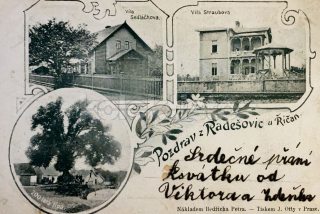 Vila
Sedláčkova.
Vila Straubova.
Pozdrav z Radešovic u Říčan.
Srdečné přání
k svátku od
Viktora a Zdeňka
Nákladem Bedřicha Petra. - Tiskem J. Otty v Praze.